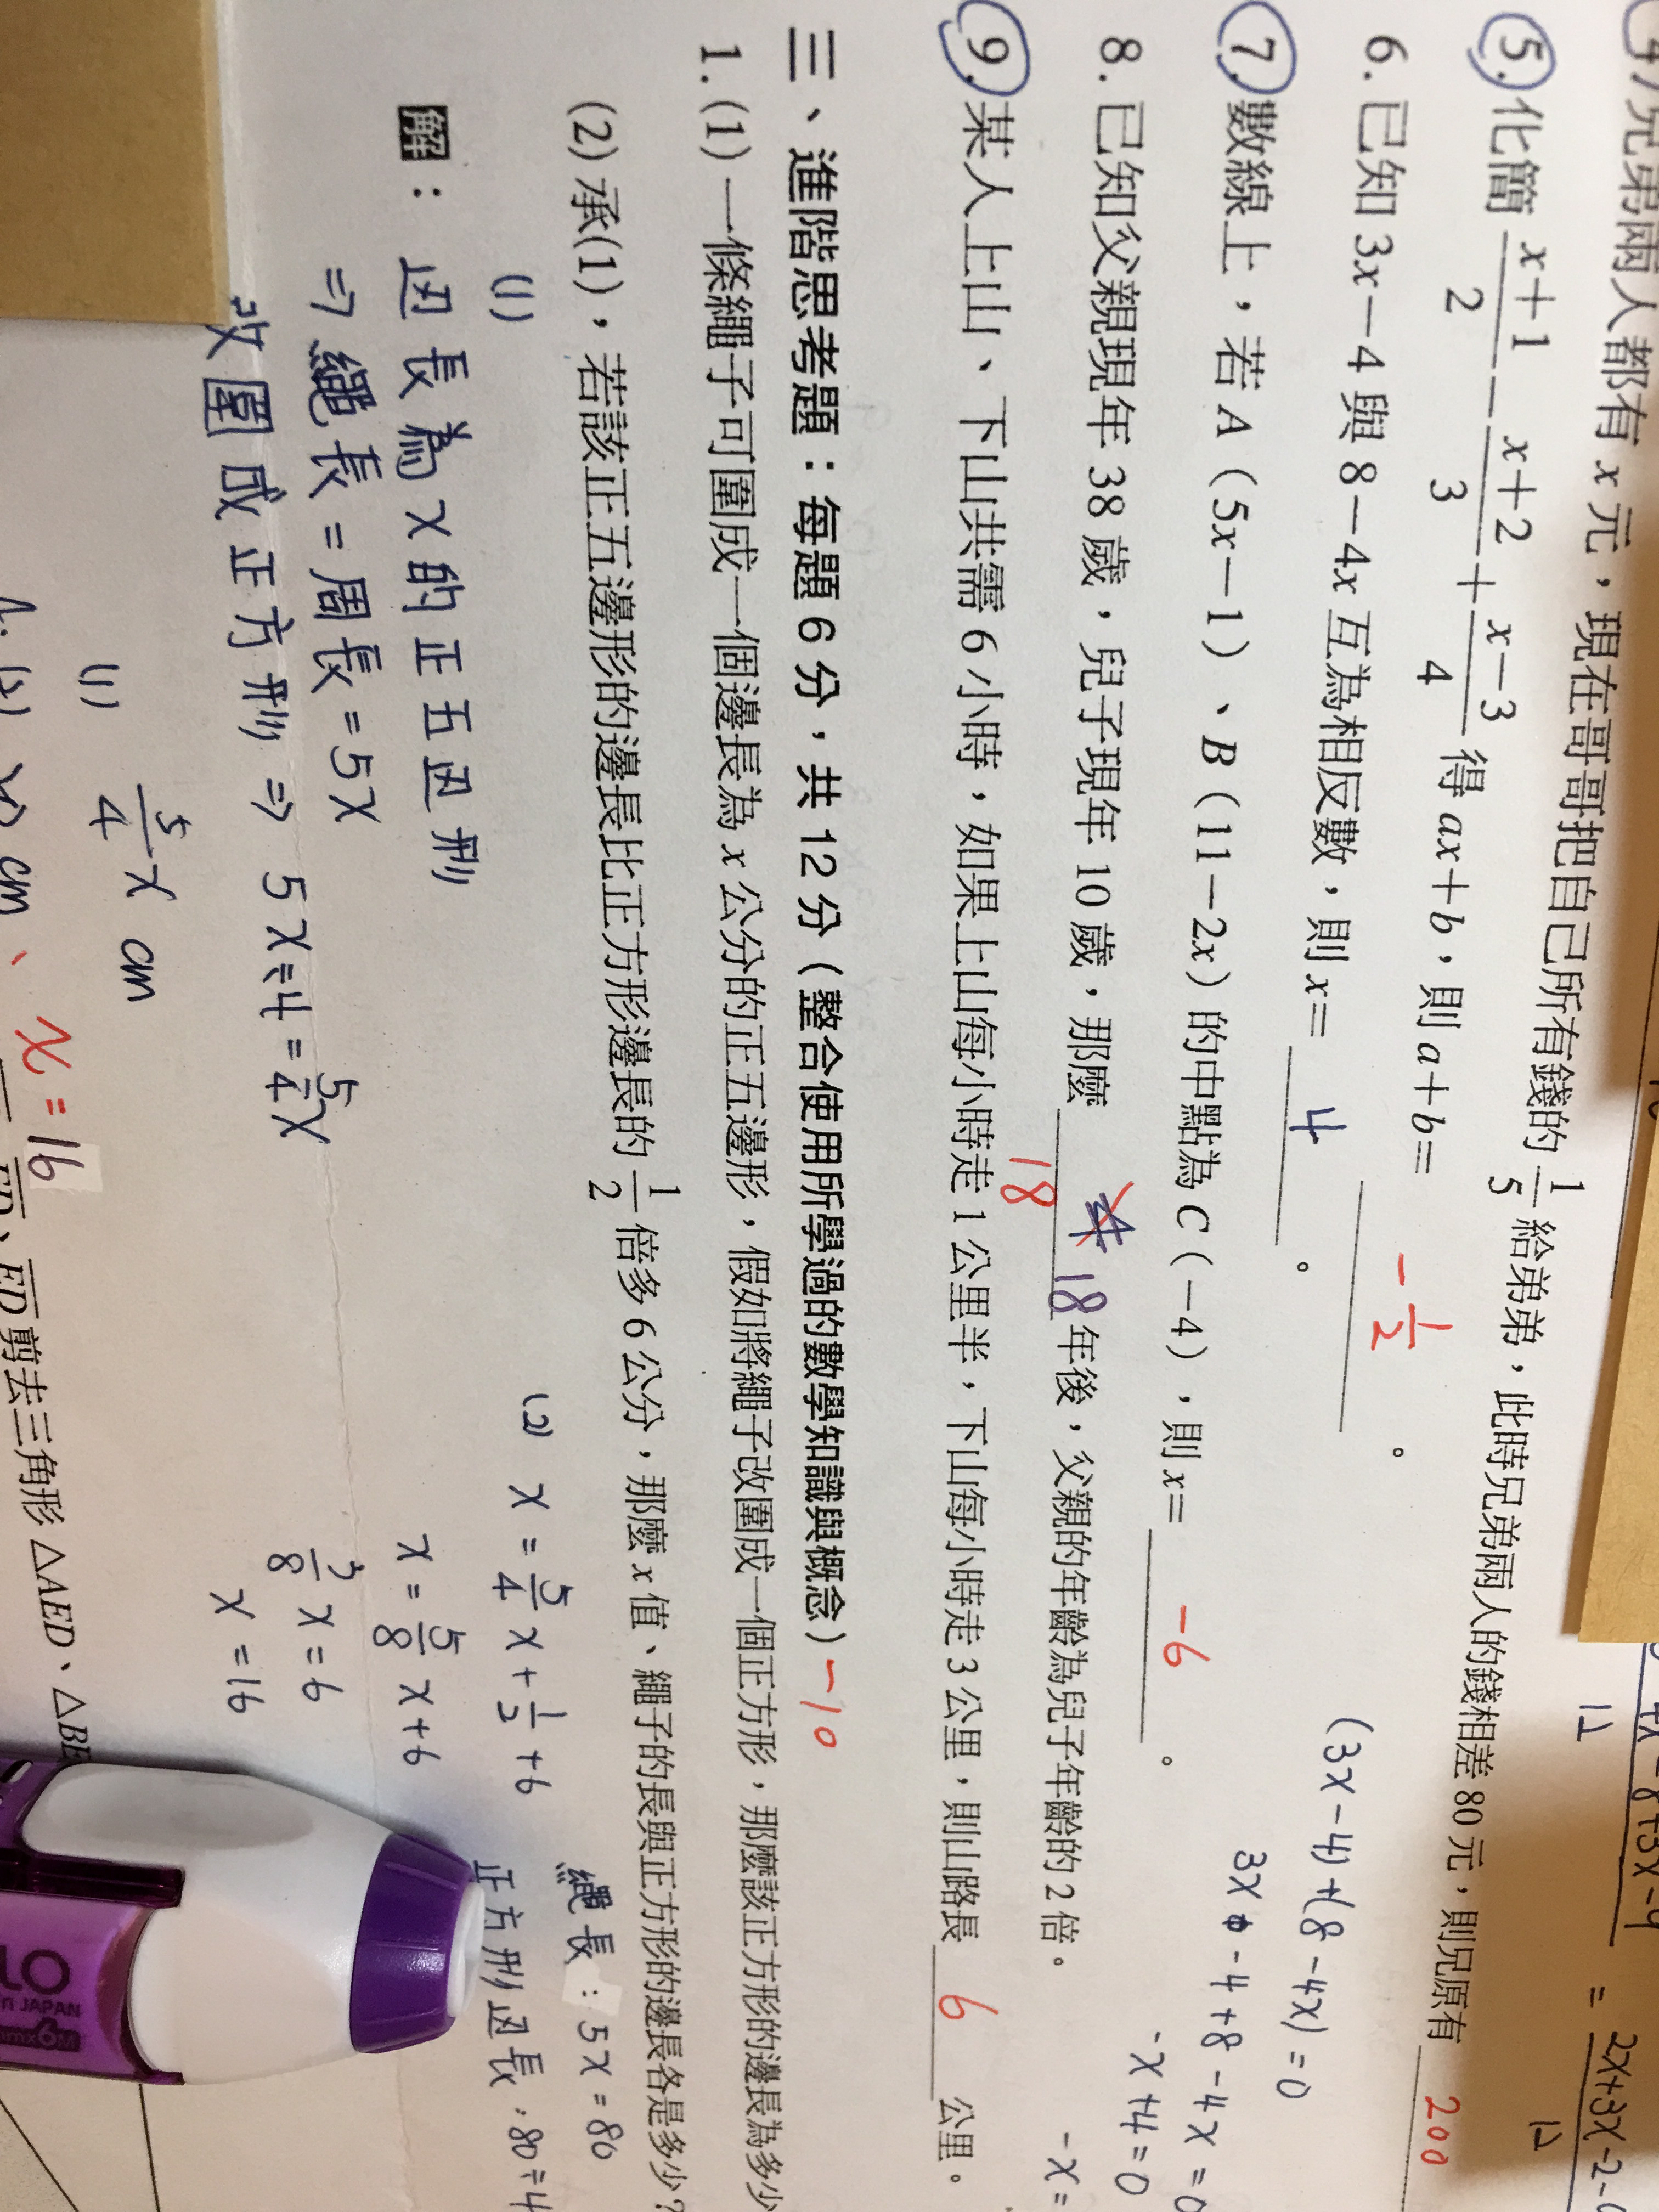 兄弟兩人都有 x 元，現在哥哥把自己所有錢的 1/5 給弟弟，此時兄弟兩人的錢相差 80 元，則兄原有 200
5. 化簡 (x+1)/2 − (x+2)/3 + (x−3)/4 得 ax+b，則 a+b= −1/2 。
6. 已知 3x−4 與 8−4x 互為相反數，則 x= 4 。
(3x−4)+(8−4x)=0
3x −4+8−4x=0
−x+4=0
−x=
7. 數線上，若 A（5x−1）、B（11−2x）的中點為 C（−4），則 x= −6 。
8. 已知父親現年 38 歲，兒子現年 10 歲，那麼 18 年後，父親的年齡為兒子年齡的 2 倍。
18
9. 某人上山、下山共需 6 小時，如果上山每小時走 1 公里半，下山每小時走 3 公里，則山路長 6 公里。
三、進階思考題：每題 6 分，共 12 分（整合使用所學過的數學知識與概念）−10
1. (1) 一條繩子可圍成一個邊長為 x 公分的正五邊形，假如將繩子改圍成一個正方形，那麼該正方形的邊長為多少
(2) 承(1)，若該正五邊形的邊長比正方形邊長的 1/2 倍多 6 公分，那麼 x 值、繩子的長與正方形的邊長各是多少？
解：
(1)
边長為x的正五边形
⇒繩長=周長=5x
改圍成正方形⇒ 5x÷4=5/4x
(1) 5/4x cm
(2) x=5/4x+1/2+6
x=5/8x+6
3/8x=6
x=16
繩長：5x=80
正方形边長：80÷4
x=16
cm、
ED 剪去三角形 △AED、△BE
JAPAN